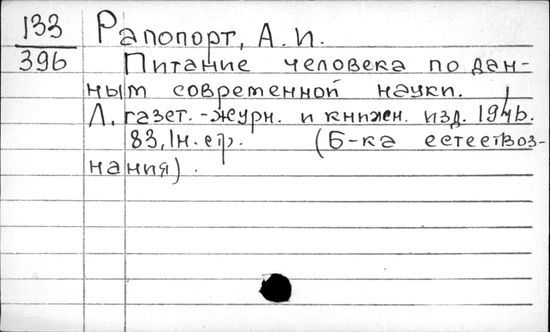 133
396
Рапопорт, А. И.
Питание человека по дан-
ным современной науки.
Л. газет.-журн. и книжн. изд. 1946.
83, 1н. стр. (Б-ка естествоз-
нания).